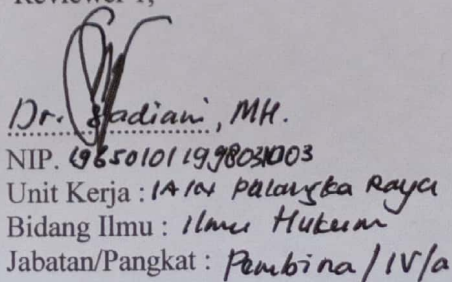 Reviewer 1,
Dr. Sadiani, MH.
NIP. 196501011998031003
Unit Kerja : IAIN Palangka Raya
Bidang Ilmu : Ilmu Hukum
Jabatan/Pangkat : Pembina / IV/a